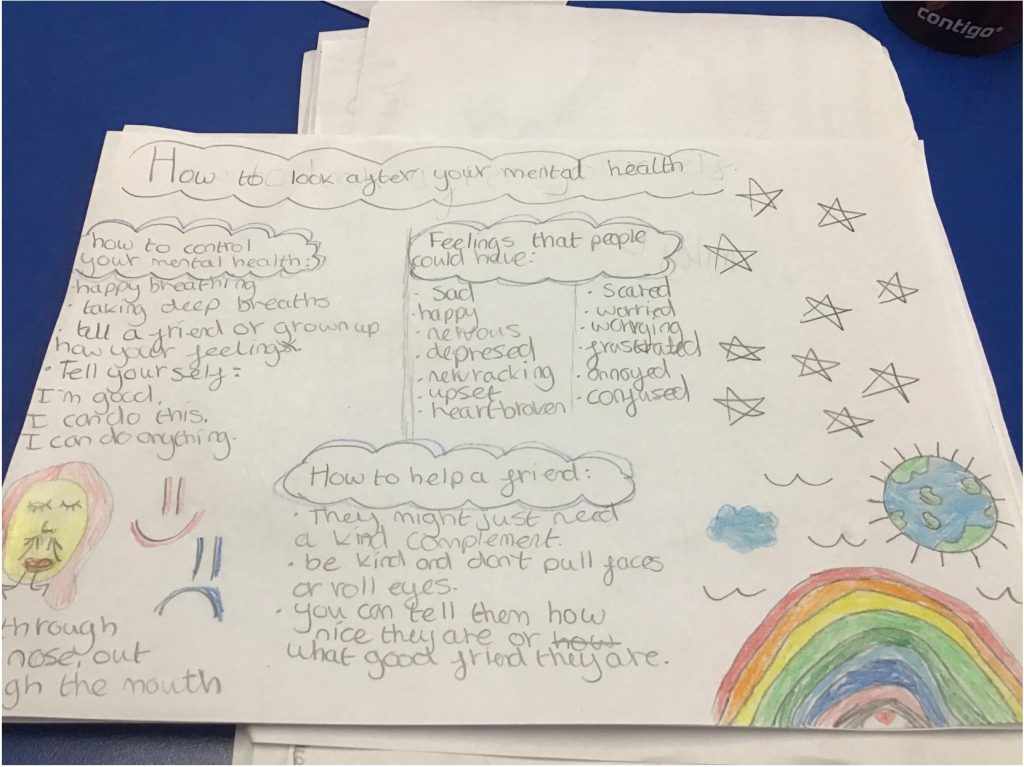 contigo®
How to look after your mental health
how to control
your mental health:
• happy breathing
• taking deep breaths
• tell a friend or grown up
how your feeling
• Tell your self:
I'm good.
I can do this.
I can do anything.
Feelings that people
could have:
• sad
• happy
• nervous
• depresed
• newracking
• upset
• heartbroken
• scared
• worried
• worrying
• frustrated
• annoyed
• confused
How to help a friend:
• They might just need
a kind complement.
• be kind and don't pull faces
or roll eyes.
• you can tell them how
nice they are or how
what good friend they are.
through
nose, out
gh the mouth